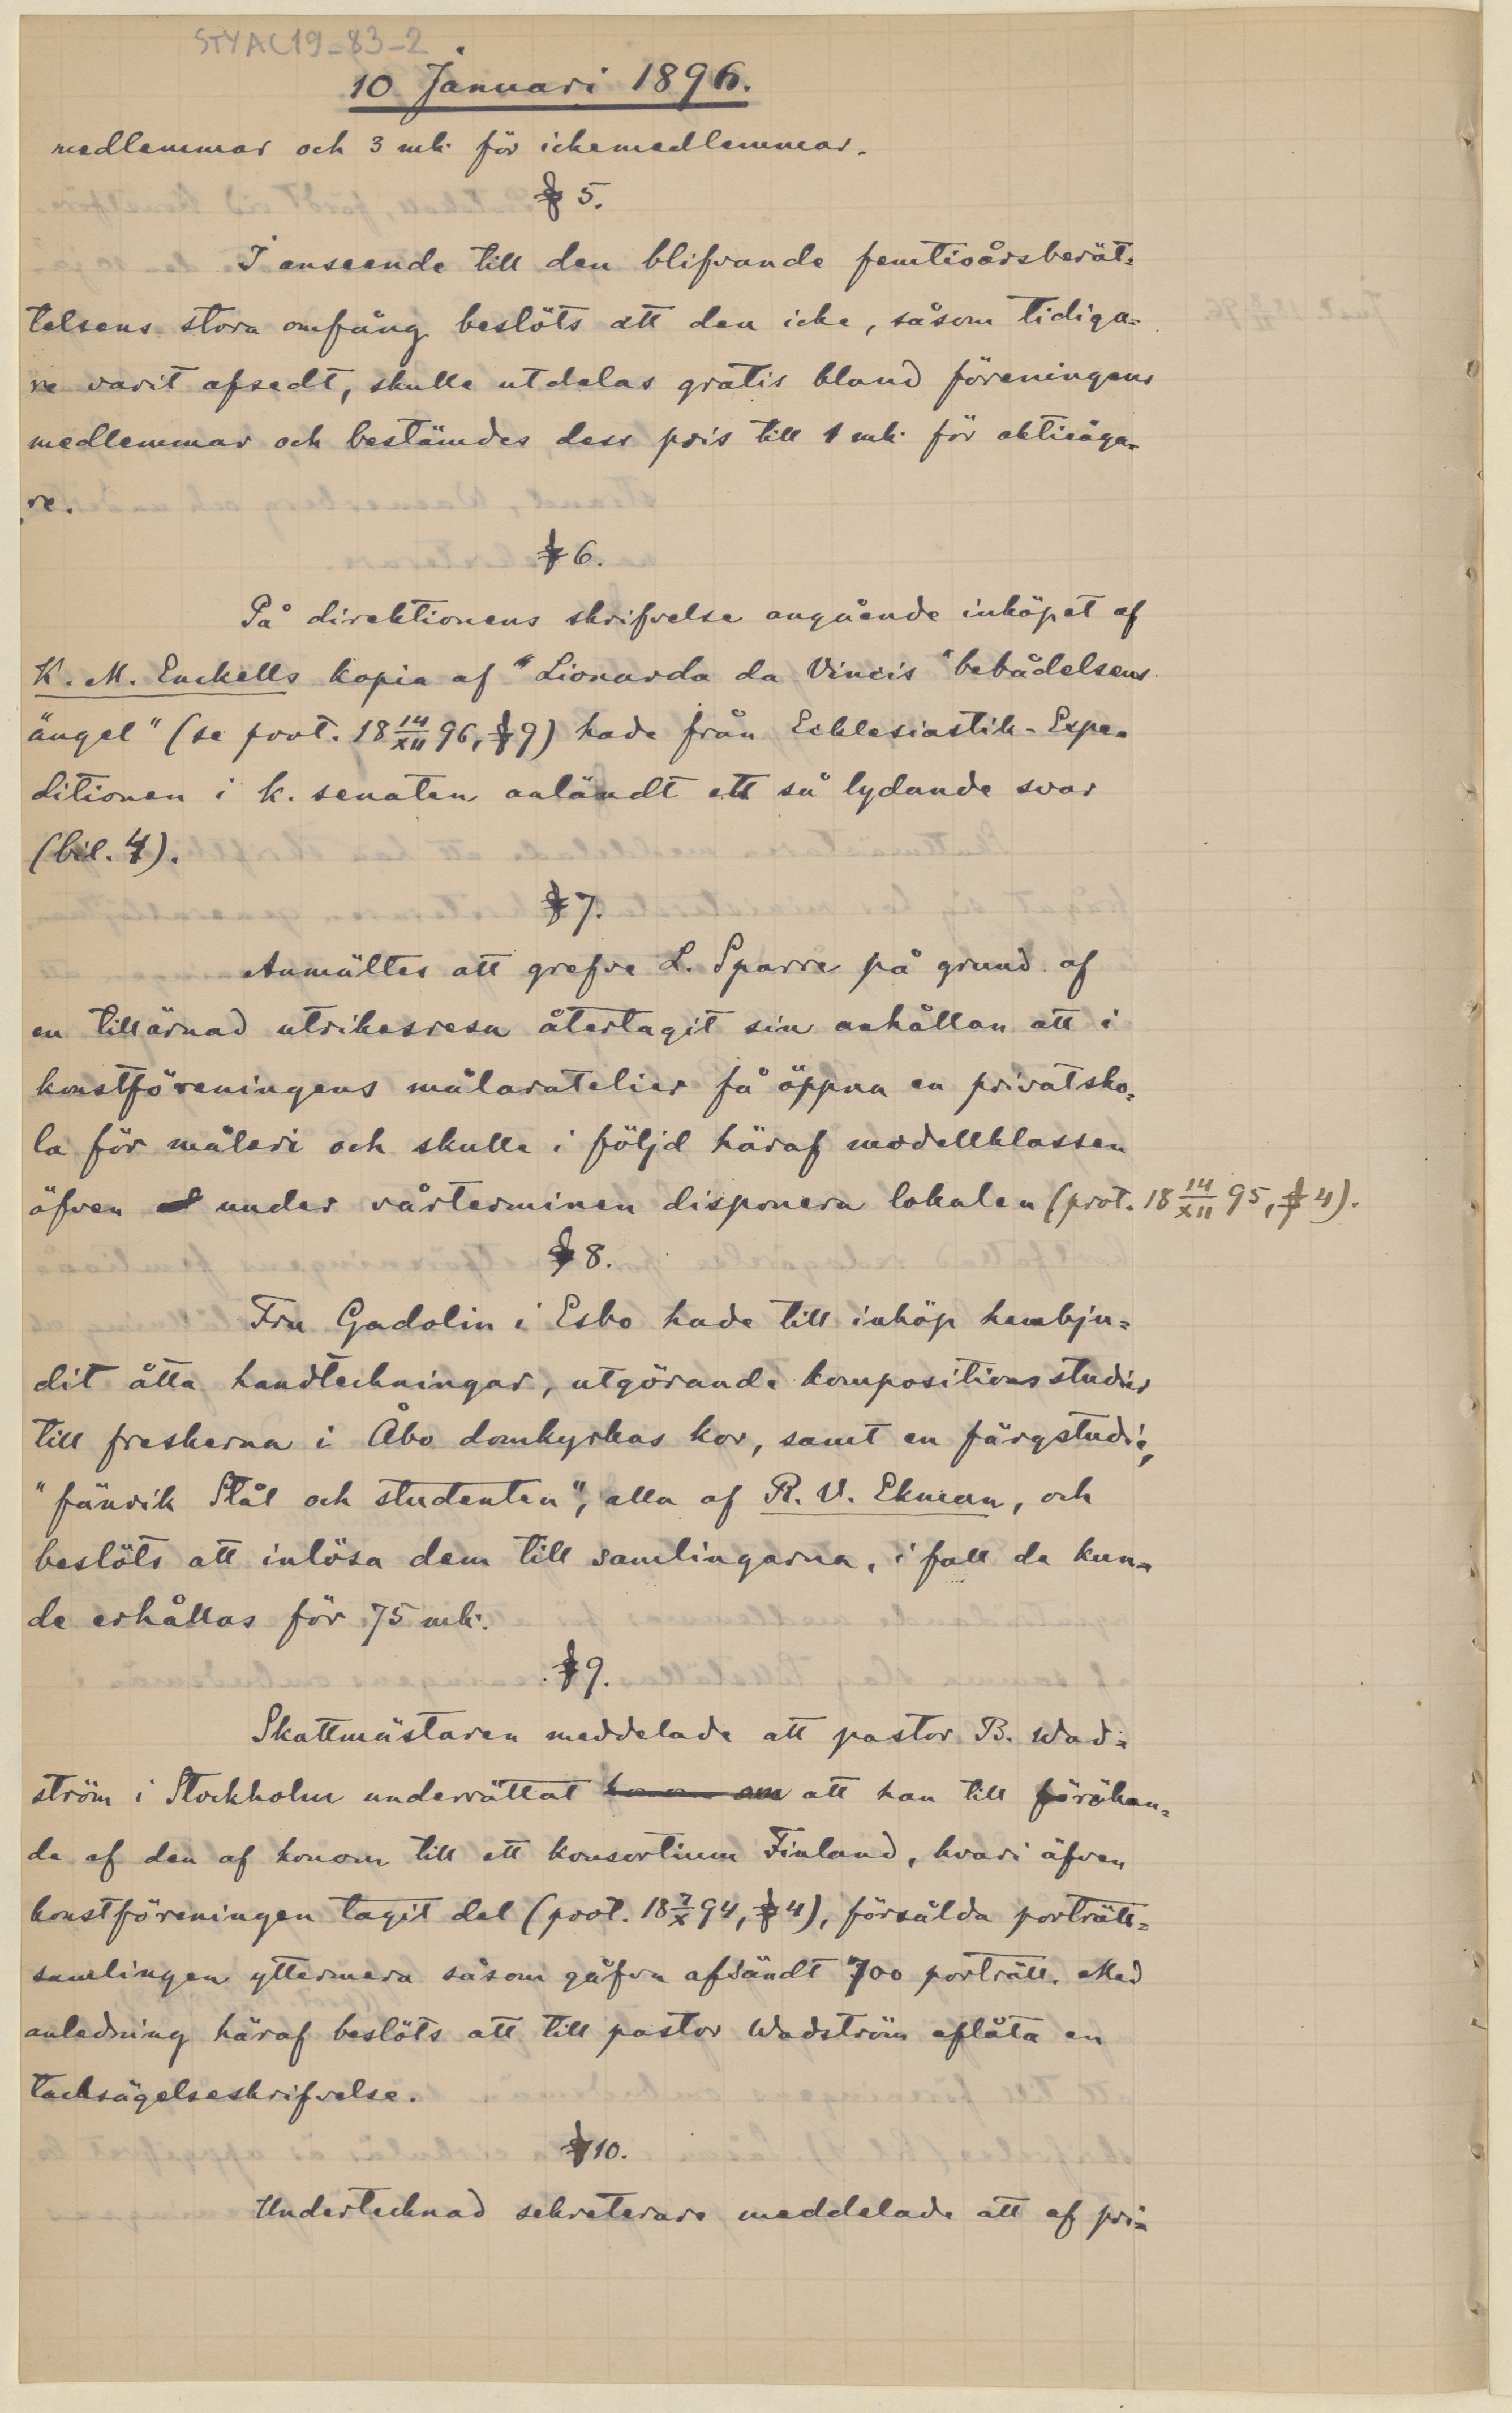 STYAC19-83-2
10 Januari 1896.
medlemmar och 3 mk. för ickemedlemmar.
§ 5.
I anseende till den blifvande femtioårsberät-
telsens stora omfång beslöts att den icke, såsom tidiga-
re varit afsedt, skulle utdelas gratis bland föreningens
medlemmar och bestämdes dess pris till 1 mk. för aktieäga-
re.
§ 6.
På direktionens skrifvelse angående inköpet af
K. M. Enckells kopia af "Lionarda da Vincis "bebådelsens
ängel" (se prot. 18 14/XII 96, § 9) hade från Ecklesiastik-Expe-
ditionen i k. senaten anländt ett så lydande svar
(bil. 4).
§ 7.
Anmältes att grefve L. Sparre på grund af
en tillärnad utrikesresa återtagit sin anhållan att i
konstföreningens målaratelier få öppna en privatsko-
la för måleri och skulle i följd häraf modellklassen
äfven under vårterminen disponera lokalen (prot. 18 14/XII 95, § 4).
§ 8.
Fru Gadolin i Esbo hade till inköp hembju-
dit åtta handteckningar, utgörande kompositionsstudier
till freskerna i Åbo domkyrkas kor, samt en färgstudie,
"fänrik Stål och studenten", alla af R. V. Ekman, och
beslöts att inlösa dem till samlingarna, i fall de kun-
de erhållas för 75 mk.
§ 9.
Skattmästaren meddelade att pastor B. Wad-
ström i Stockholm underrättat att han till förökan-
de af den af honom till ett konsortium Finland, hvari äfven
konstföreningen tagit del (prot. 18 7/X 94, § 4), försålda porträtt-
samlingen yttermera såsom gåfva afsändt 700 porträtt. Med
anledning häraf beslöts att till pastor Wadström aflåta en
tacksägelseskrifvelse.
§ 10.
Undertecknad sekreterare meddelade att af pri-